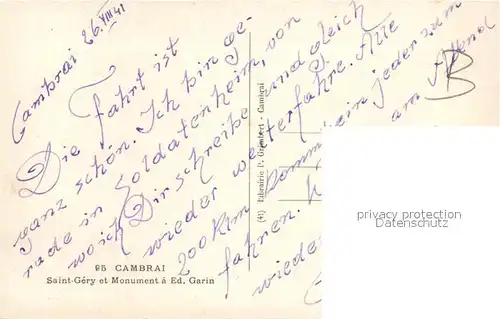 Cambrai 26.VIII 41
Die Fahrt ist
ganz schön. Ich bin ge-
rade in Soldatenheim, von
wo ich Dir schreibe und gleich
wieder weiterfahre. Alle
200 Klm kommt ein jeder zum
fahren.
am Abend
wieder
B
(41) Librairie P. Grimbert - Cambrai
95 CAMBRAI
Saint-Géry et Monument à Ed. Garin
privacy protection
Datenschutz